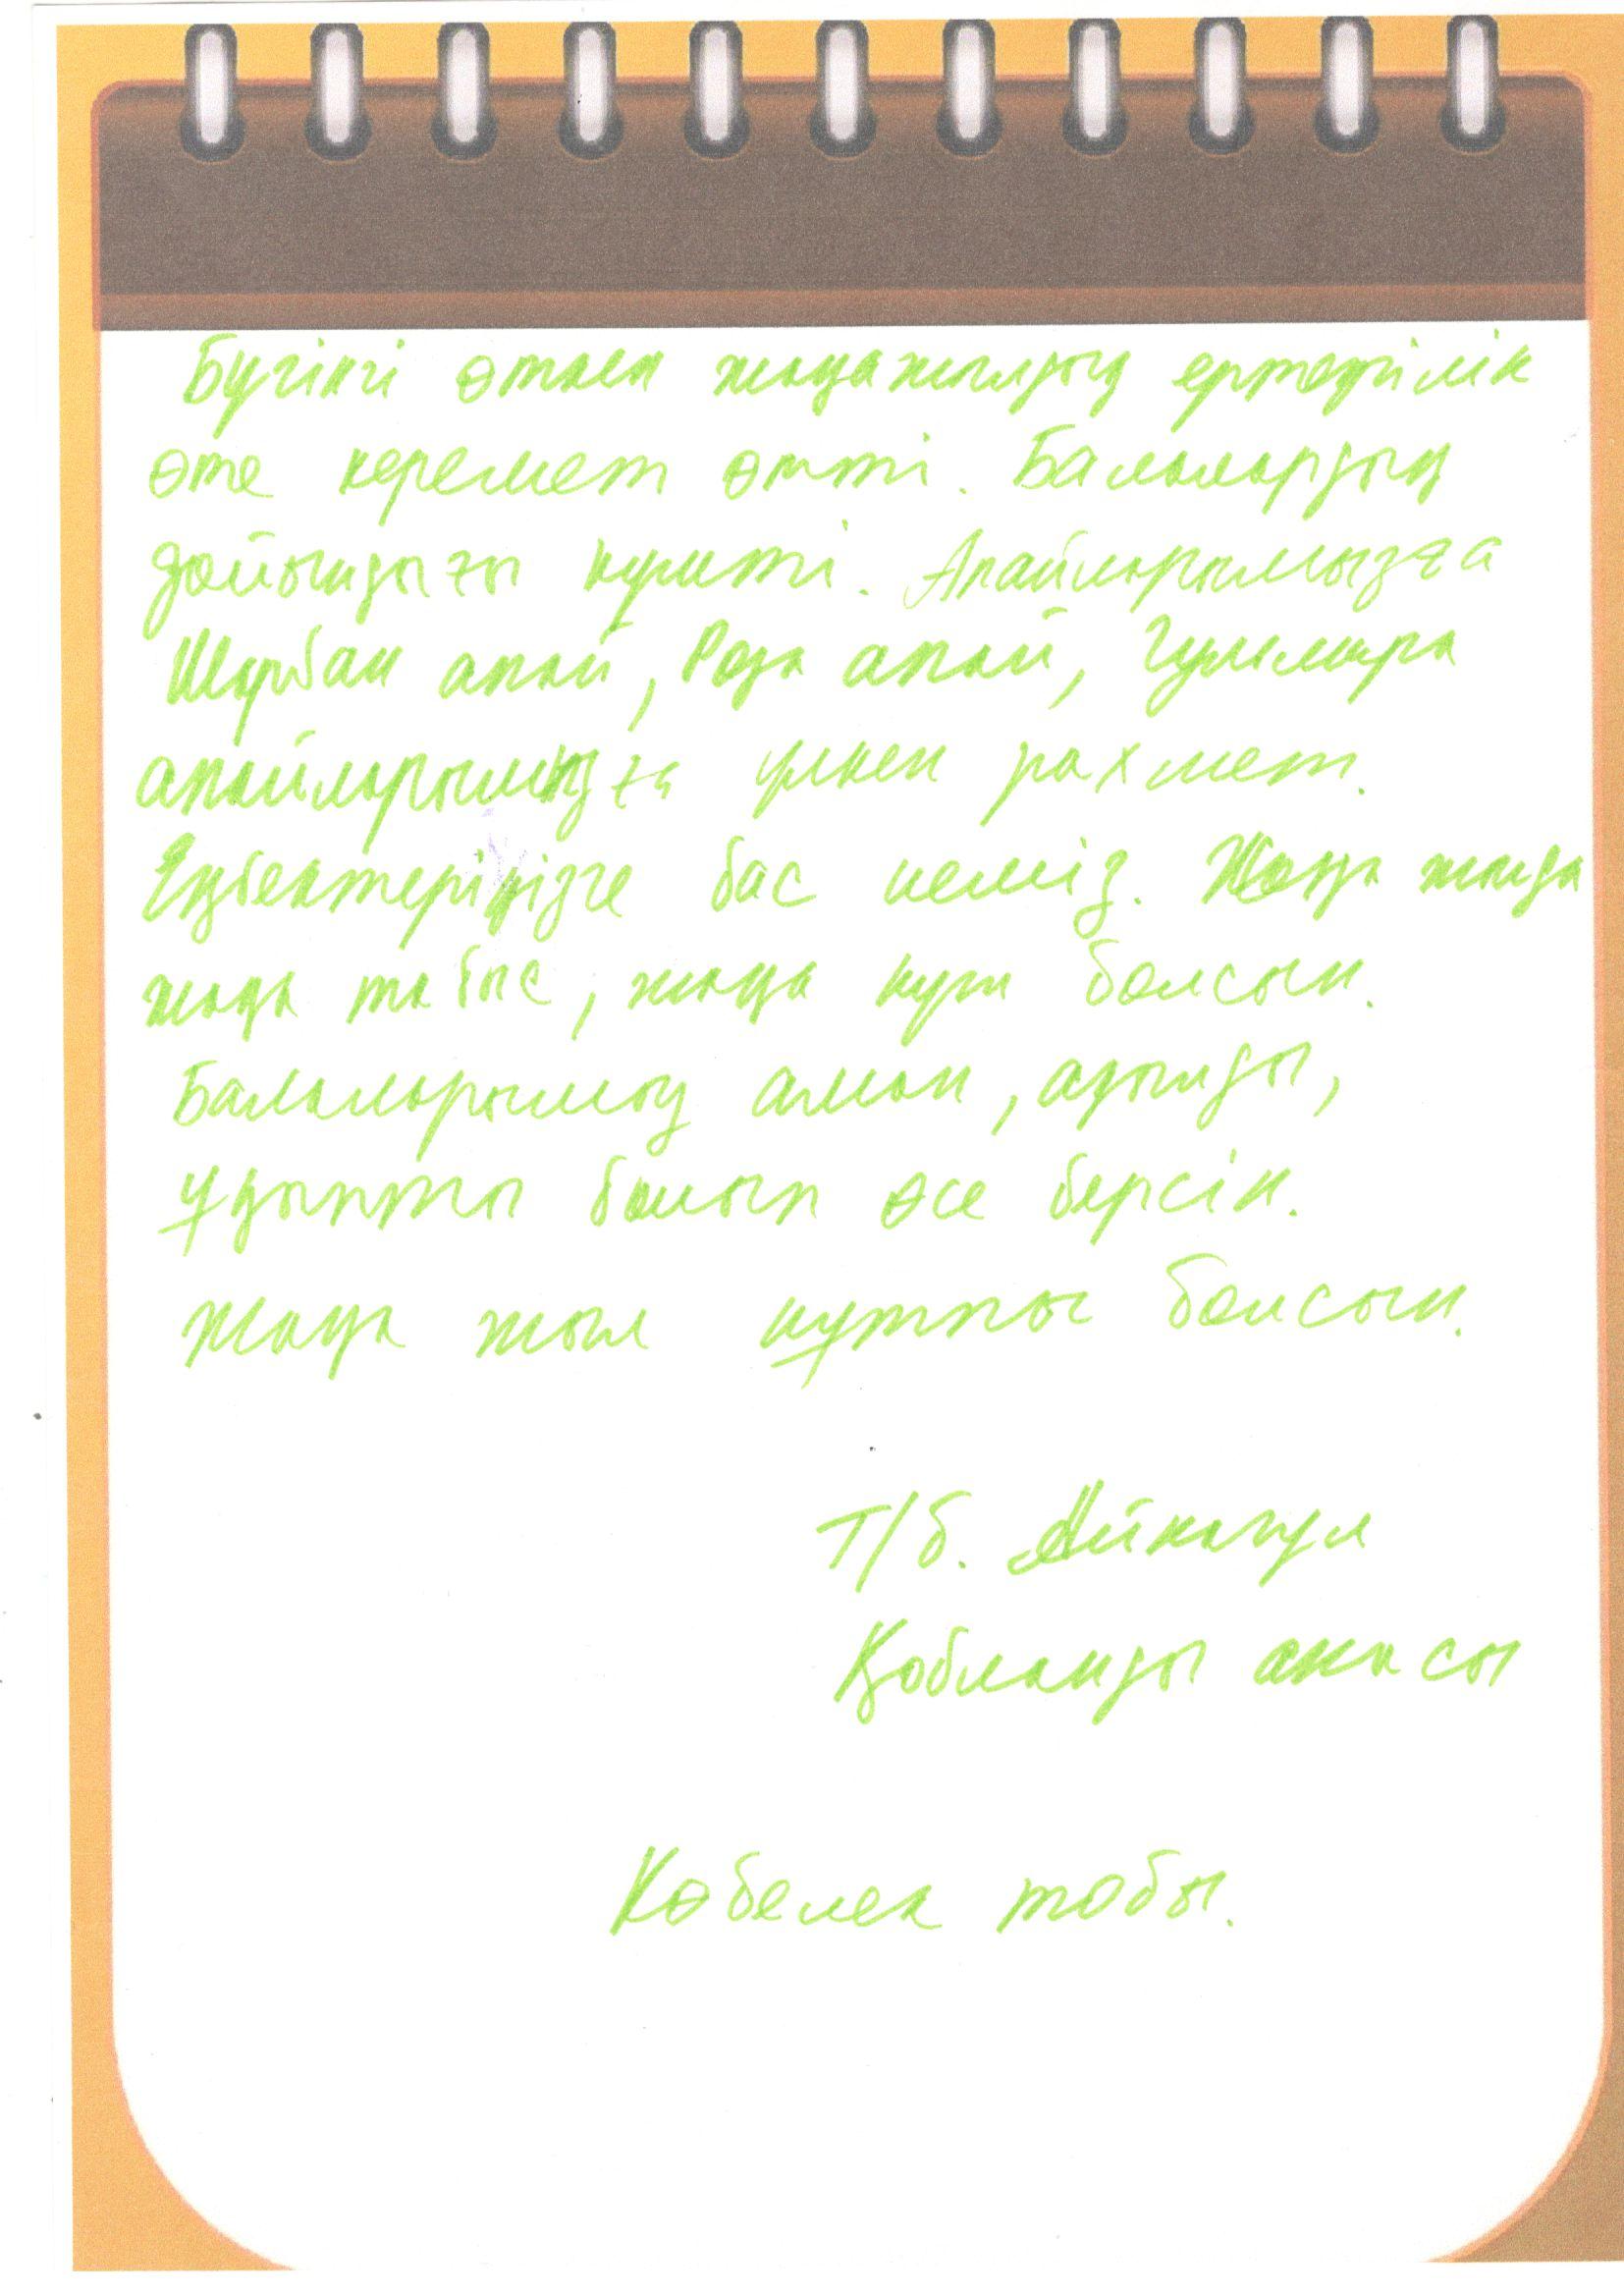 Бүгінгі өткен жаңажылдық ертеңгілік
өте керемет өтті. Балалардың
дайындығы күшті. Апайларымызға
Шарбан апай, Роза апай, Гульмира
апайларымызға үлкен рахмет.
Еңбектеріңізге бас иеміз. Жаңа жылда
жаңа табыс, жаңа күш болсын.
Балаларымыз аман, ақылды,
ұқыпты болып өсе берсін.
Жаңа жыл құтты болсын.
Т/б. Айнагул
Қобланды анасы
Көбелек тобы.